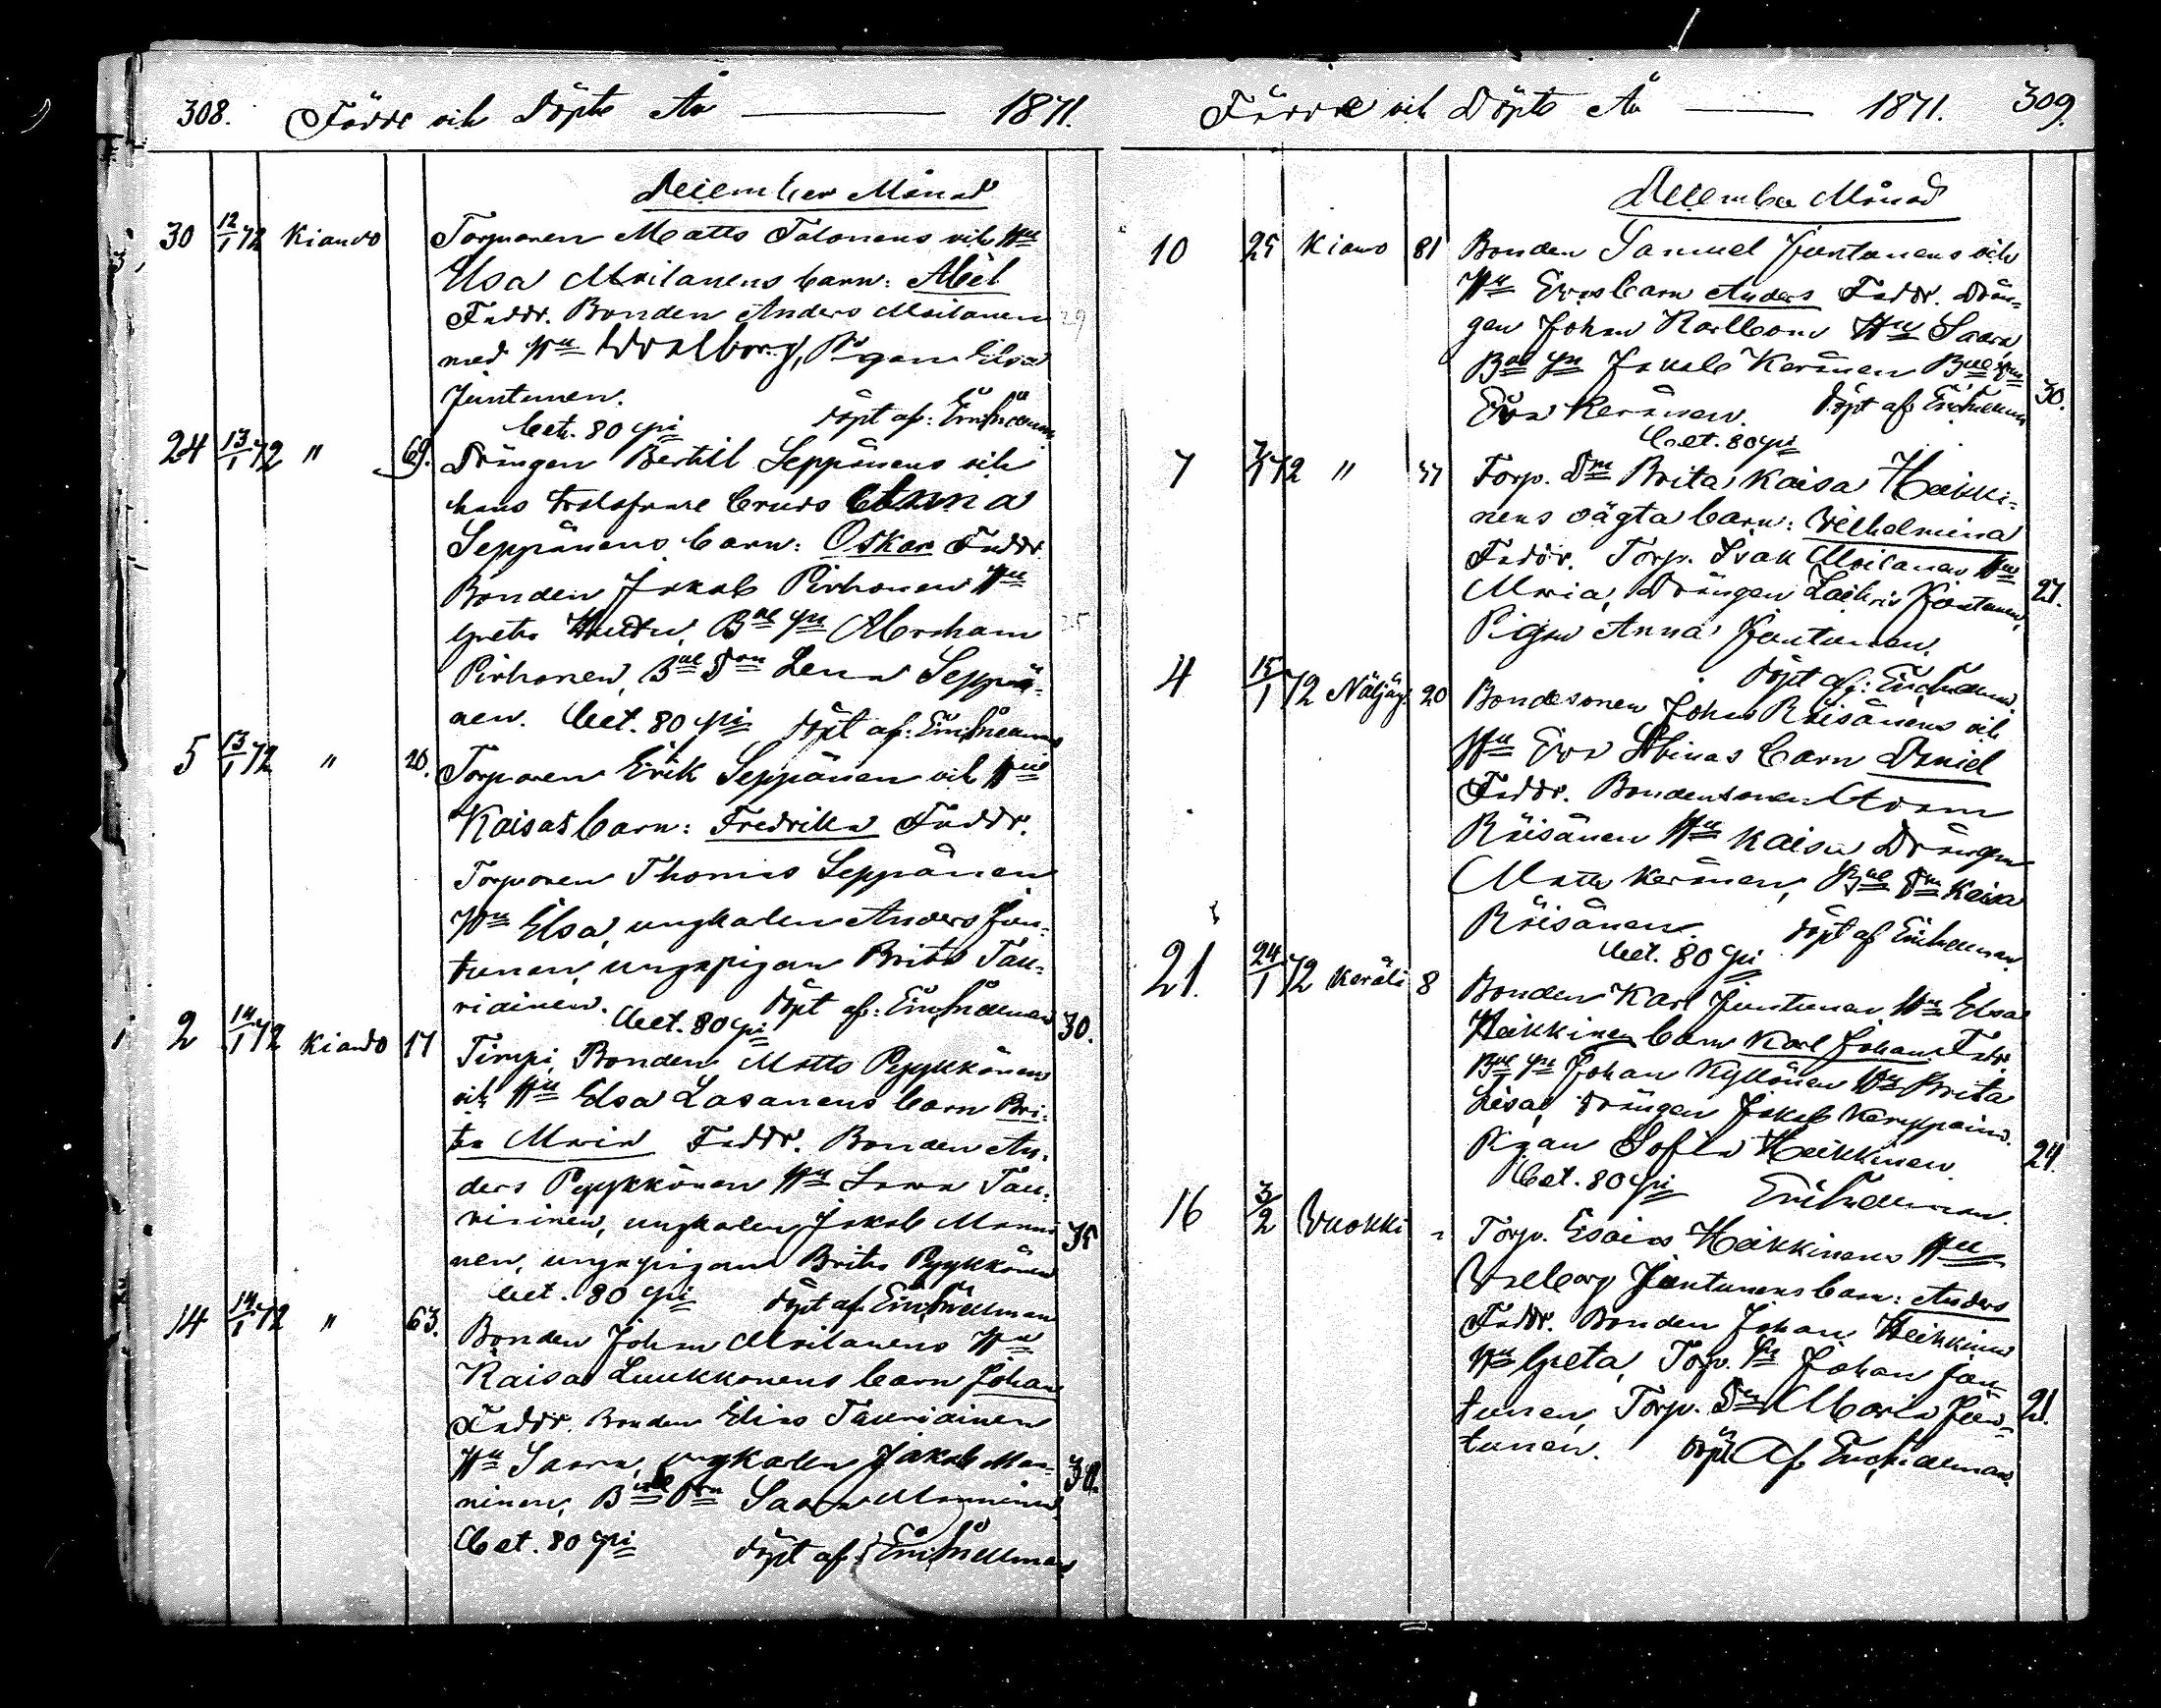 308. Födde och Döpte År 1871.
December Månad
30 12/1 72 Kiando Torparen Matts Talonens och Hu
Elsa Moilanens barn: Abel
Faddr. Bonden Anders Moilanen 29
med Hu Walborg, Pigan Elsa
Juntunen.
bet. 80 pi döpt af:
24 13/1 72 " 69. Drängen Bertill Seppänens och
hans trolofvade bruds Anna
Seppänens barn: Oskar Faddr.
Bonden Jakob Pirhonen Hu
Greta Huttu, Bde Sn Abraham 25
Pirhonen, Bde Dtn Lena Seppä-
nen. bet. 80 pi döpt af:
5 13/1 72 " 20. Torparen Erik Seppänen och Hu
Kaisas barn: Fredrika Faddr.
Torparen Thomas Seppänen
Hu Elsa, ungkarlen Anders Jun-
tunen, ungapigan Brita Tau-
riainen. bet. 80 pi döpt af: 30.
2 14/1 72 Kiando 17 Timpi, Bonden Matts Pyykkönen
och Hu Elsa Lasanens barn Bri-
ta Maria Faddr. Bonden An-
ders Pyykkönen Hu Saara Tau-
riainen, ungkarlen Jakob Manni- 35
nen, ungapigan Brita Pyykkönen
bet. 80 pi döpt af
14 14/1 72 " 63. Bonden Johan Moilanens Hu
Kaisa Luukkonens barn Johan
Faddr. Bonden Elias Tauriainen
Hu Saara, ungkarlen Jakob Man- 38.
ninen, Bde Dtn Saara Manninen
bet. 80 pi döpt af:
Födde och Döpte År 1871. 309.
December Månad
10 25 Kiando 81 Bonden Samuel Juntunens och
Hu Evas barn Anders Faddr. Drän-
gen Johan Karlbom Hu Saara
Bde Sn Jakob Keränen Bde
Eva Keränen. döpt af 30.
bet. 80 pi
7 7/1 72 " 37 Torp. Dtr Brita Kaisa Heikki-
nens oägta barn: Wilhelmina
Faddr. Torp. Isak Moilanen Hu
Maria, Drängen Zachris Juntunen, 27.
Pigan Anna Juntunen.
döpt af:
4 15/1 72 Näljäg. 20 Bondesonen Johan Räisänens och
Hu Eva Stinas barn Daniel
Faddr. Bondesonen Adam
Räisänen Hu Kaisa Drängen
Matts Keränen, Bde Dtn Kaisa
Räisänen. döpt af
bet. 80 pi
21. 24/1 72 Keräli 8 Bonden Karl Juntunen Hu Elsa
Heikkinen barn Karl Johan Fadr.
Bde Sn Johan Kyllönen Hu Brita
Lisa, Drängen Jakob Kemppain.
Pigan Sofia Heikkinen. 24.
bet. 80 pi
16 3/2 Vuokki " Torp. Esaias Heikkinens Hu
Valborg Juntunens barn: Anders
Faddr. Bonden Johan Heikkinen
Hu Greta, Torp. Sn Johan Jun-
tunen, Torp. Dtn Maria Jun- 21.
tunen. döpt af